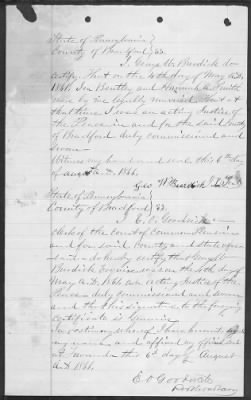 State of Pennsylvania }
County of Bradford } ss.
I George W Burdick do
certify that on the 4th day of May A.D.
1861. Bentley and Smith
were by me legally married that
that time I was an acting Justice of
the Peace in and for the said County
of Bradford duly commissioned and
sworn
Witness my hand and seal this 6th day
of A.D. 1866.
Geo W Burdick
State of Pennsylvania }
County of Bradford } ss.
I E. O. Goodrich
clerk of the court of common Pleas in
and for said County and state afore-
said do hereby certify that George W
Burdick Esquire was on the 4th day of
May A.D. 1861 an acting Justice of the
Peace duly commissioned and sworn
and that his signature to the foregoing
certificate is Genuine
In testimony whereof I have hereunto
my name and affixed my official seal
at this 6th day of August
A.D. 1866.
E O Goodrich
Prothonotary